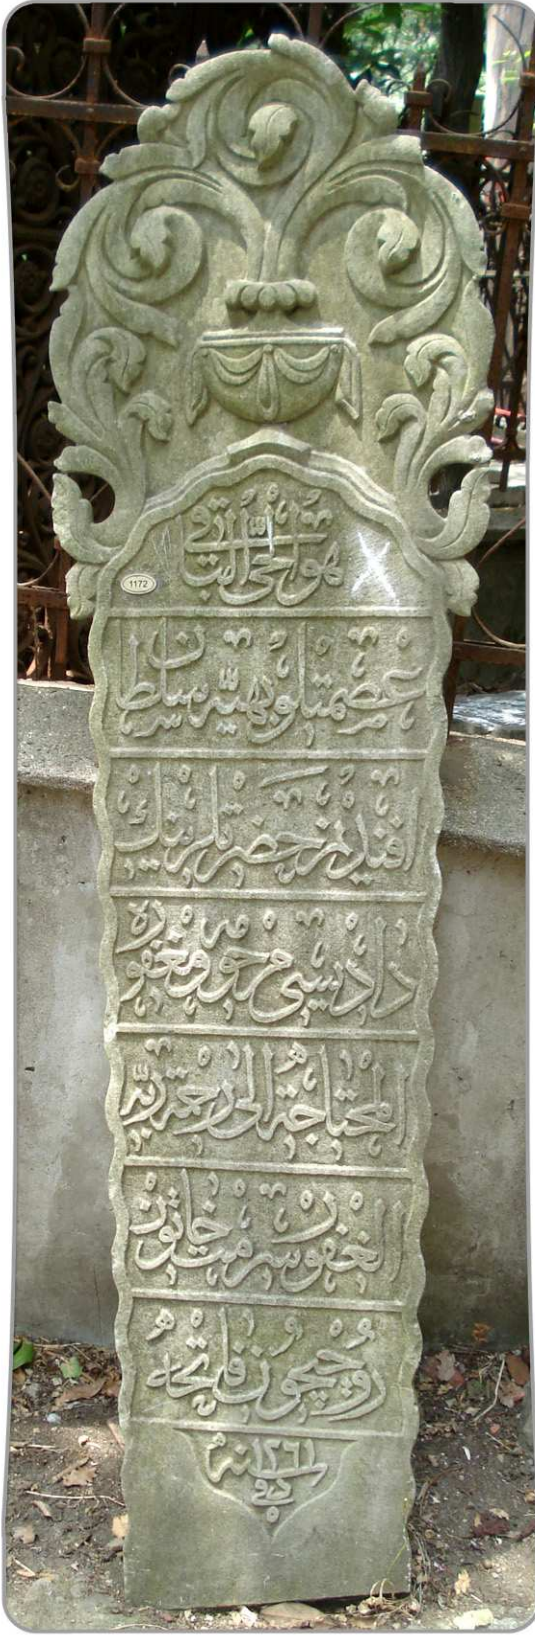 هو الحى الباقى
1172
عصمتلو بهيه سلطان
افنديمز حضرتلرينك
داديسى مرحومه و مغفوره
المحتاجة الى رحمة ربه
الغفور سرمست خاتون
روحيچون فاتحه
سنه ١٢٦١